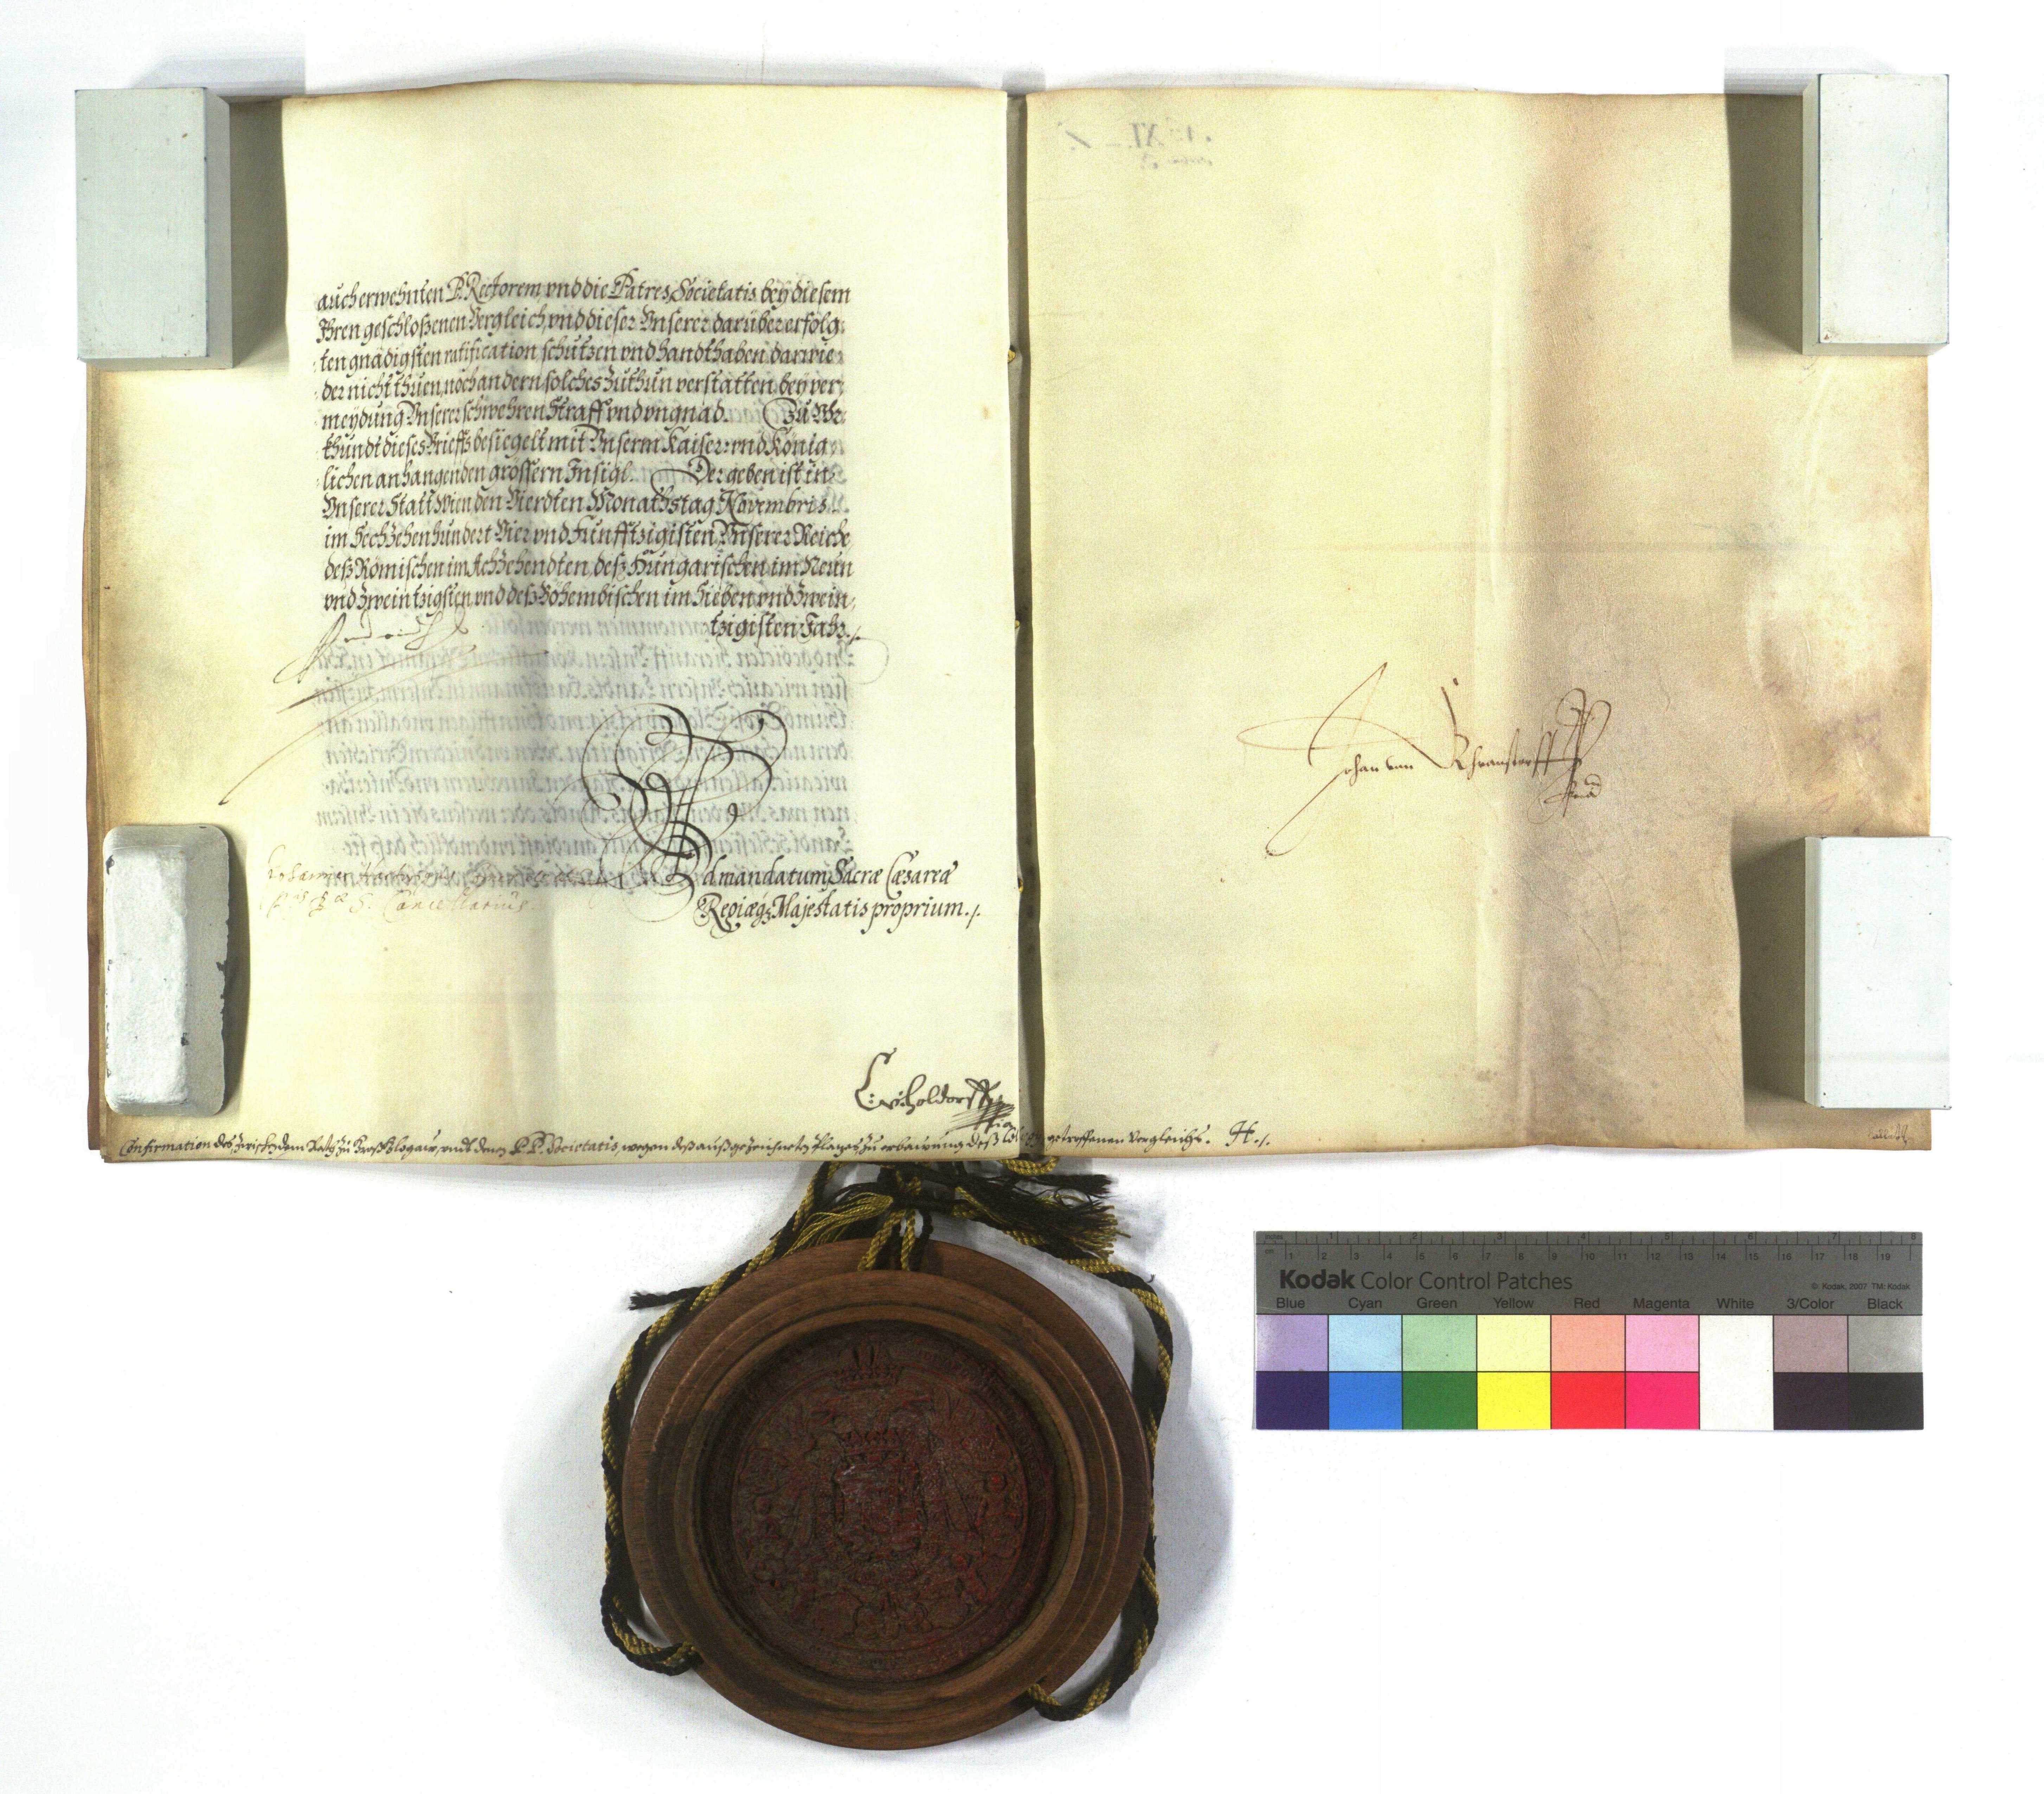 auch erwehnten P. Rectorem vnd die Patres Societatis bey diesem
Ihren geschloßenen Vergleich, vnd dieser Vnserer darüber erfolg-
ten gnädigsten ratification schützen vnd handthaben, darwie-
der nicht thuen, noch andern solches zuthun verstatten, bey ver-
meydung Vnserer schwehren Straff vnd vngnad. Zu Vhr-
khundt dieses Brieffs besiegelt mit Vnserm Kaiser: vnd König-
lichen anhangenden grössern Insigl. Der geben ist in
Vnserer Statt Wien den Vierdten Monathstag Novembris
im Sechzehenhundert Vier vnd Funfftzigisten, Vnserer Reiche
deß Römischen im Achzehendten, deß Hungarischen im Neun
vnd zweintzigsten, vnd deß Böhembischen im Sieben vnd zwein-
tzigisten Jahr./.
Ad mandatum Sacræ Cæsareæ
Regiæq; Majestatis proprium./.
Cancellarius.
Johan von
Confirmation des zwischen dem Rath zu Groß Glogaw, vndt denen P.P. Societatis, wegen deß außgezeichneten Plazes zu erbawung deß getroffenen Vergleichs. H./.
inches 1 2 3 4 5 6 7 8
cm 1 2 3 4 5 6 7 8 9 10 11 12 13 14 15 16 17 18 19
Kodak Color Control Patches
© Kodak, 2007 TM: Kodak
Blue Cyan Green Yellow Red Magenta White 3/Color Black